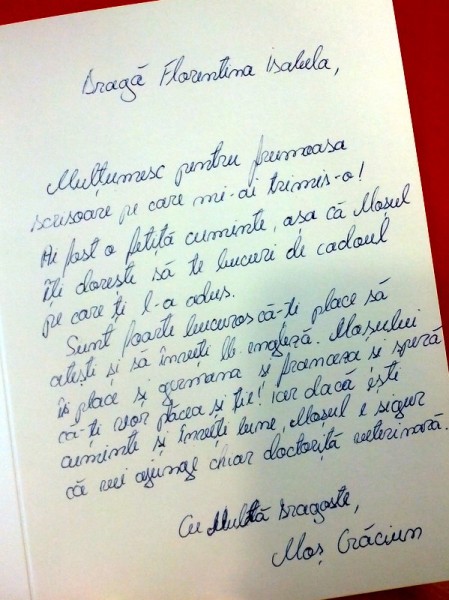 Dragă Florentina Isabela,
Mulțumesc pentru frumoasa
scrisoare pe care mi-ai trimis-o!
Ai fost o fetiță cuminte, așa că Moșul
îți dorește să te bucuri de cadoul
pe care ți l-a adus.
Sunt foarte bucuros că-ți place să
citești și să înveți lb. engleză. Moșului
îi place și germana și franceza și speră
că-ți vor plăcea și ție! Iar dacă ești
cuminte și înveți bine, Moșul e sigur
că vei ajunge chiar doctoriță veterinară.
Cu Multă Dragoste,
Moș Crăciun